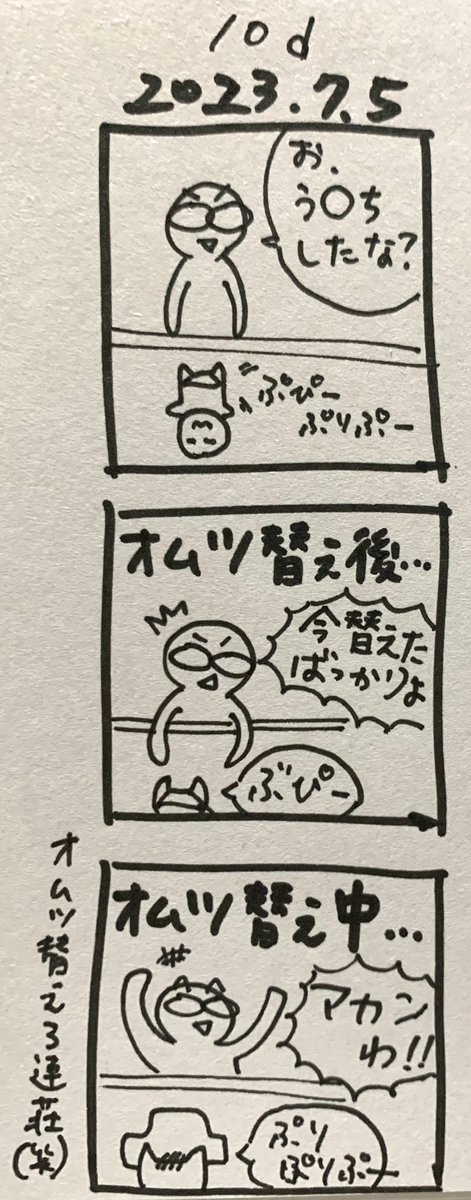 10d
2023.7.5
お、
う〇ち
したな?
ぷぴー
ぷりぷー
オムツ替え後…
今替えた
ばっかりよ
ぶぴー
オムツ替え中…
アカン
わ!!
ぷり
ぽりぷー
オムツ替え3連荘(笑)